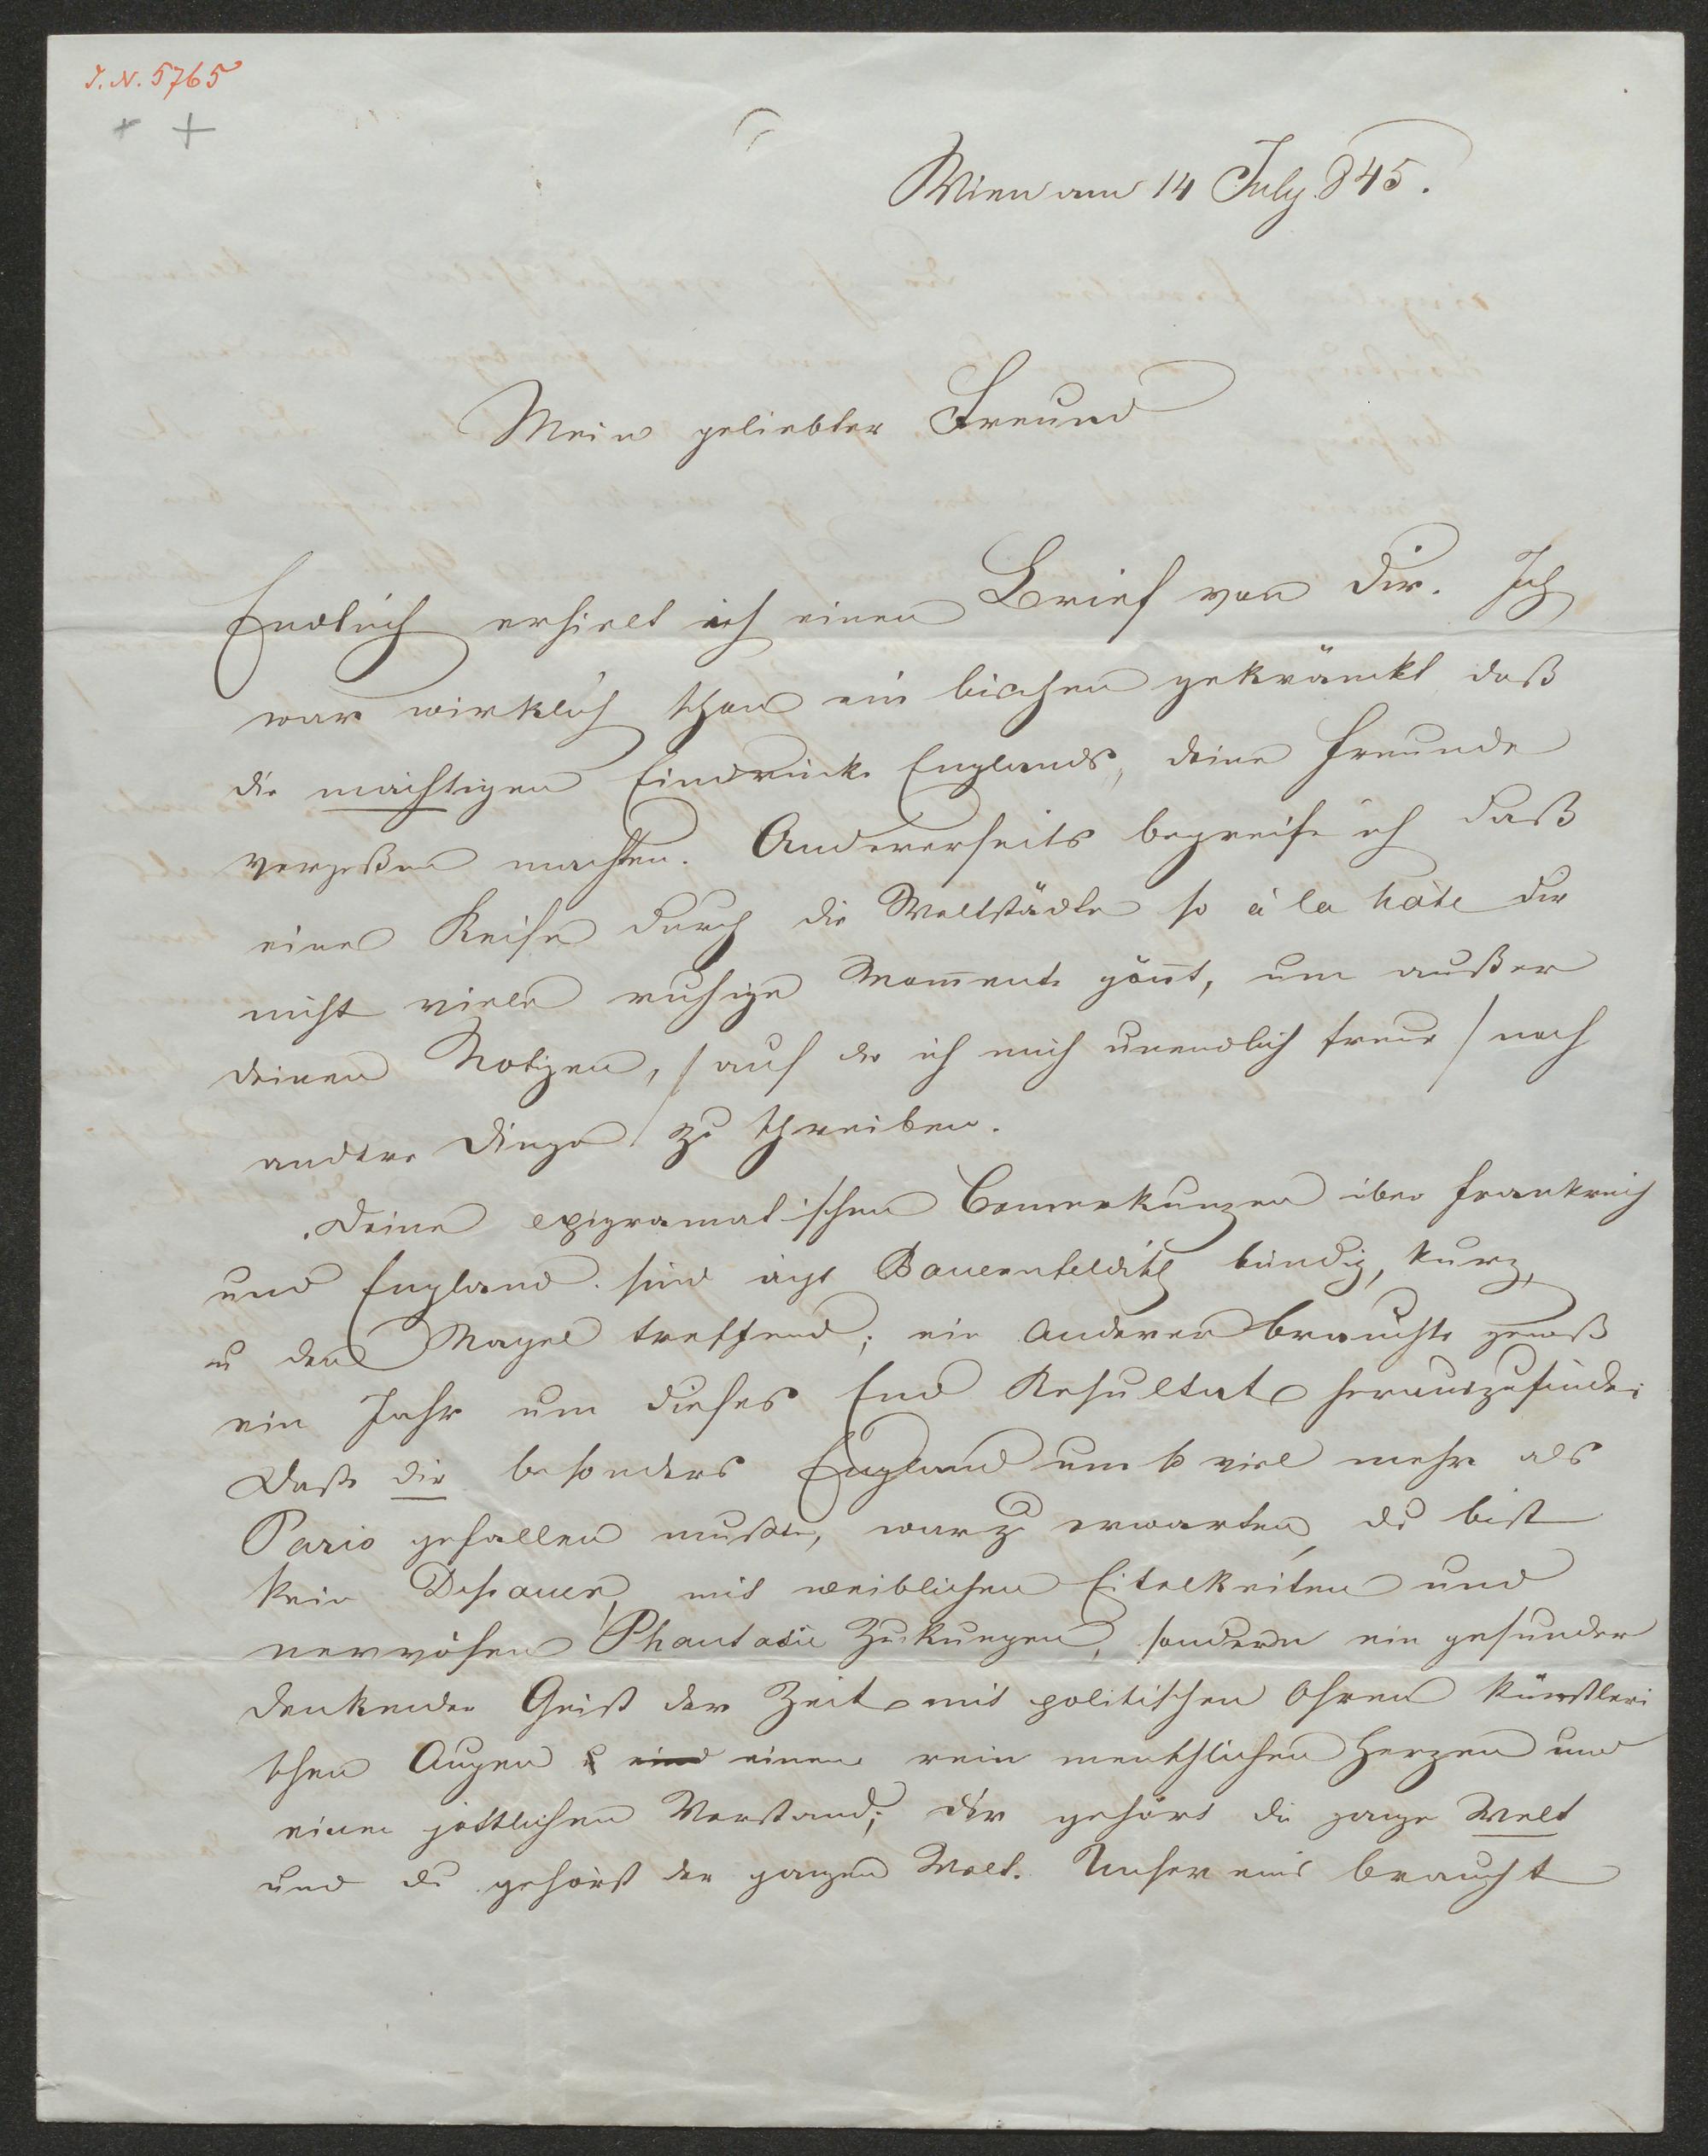 J. N. 5765
Wien am 14 July 845.
Mein geliebter Freund
Endlich erhielt ich einen Brief von dir. Ich
war wirklich schon ein bischen gekränckt daß
die mächtigen Eindrücke Englands, deine Freunde
vergeßen machten. Andererseits begreife ich daß
eine Reise durch die Weltstädte so à la hâte dir
nicht viele ruhige Momente gönt, um außer
deinen Notizen, / auf die ich mich unendlich freue / noch
andere Dinge zu schreiben.
Deine epigramatischen Bemerkungen über Frankreich
und England sind ächt Bauernfeldisch bündig, kurz,
u den Nagel treffend; ein Anderer brauchte gewiß
ein Jahr um dieses End Resultat herauszufinden;
Daß dir besonders England um so viel mehr als
Paris gefallen mußte, war zu erwarten, du bist
kein Dessauer, mit weiblichen Eitelkeiten und
nervösen Phantasie Zuckungen, sondern ein gesunder
denkender Geist der Zeit mit politischen Ohren künstleri
schen Augen u eine einem rein menschlichen Herzen und
einem göttlichen Verstand; dir gehört die ganze Welt
und du gehörst der ganzen Welt. Unser eins braucht